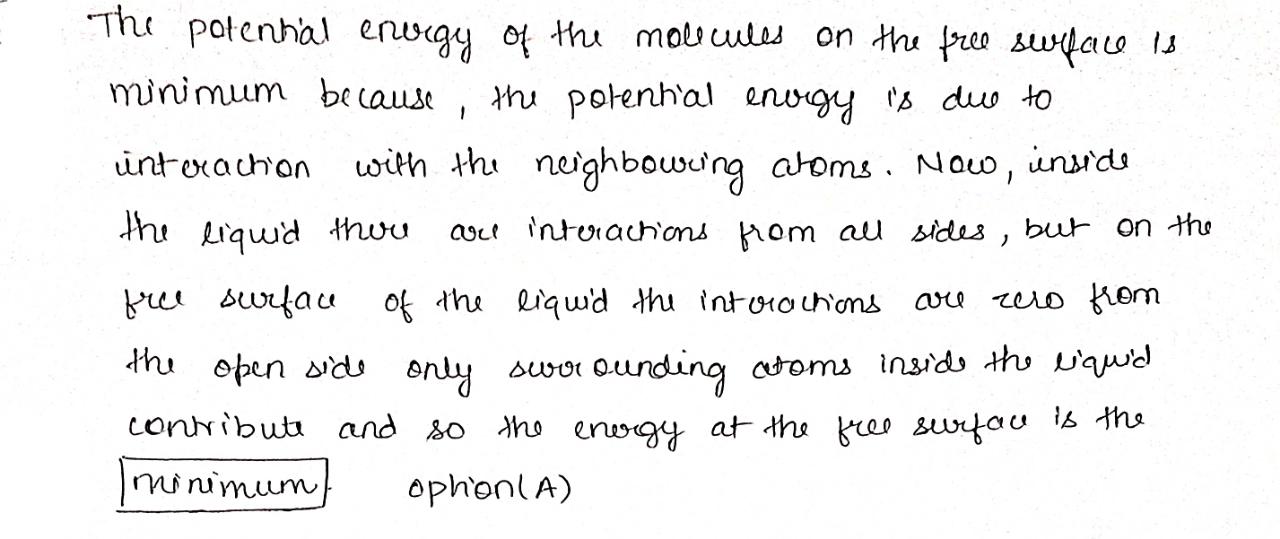 The potential energy of the molecules on the free surface is
minimum because, the potential energy is due to
interaction with the neighbouring atoms. Now, inside
the liquid there are interactions from all sides, but on the
free surface of the liquid the interactions are zero from
the open side only surrounding atoms inside the liquid
contribute and so the energy at the free surface is the
minimum. option(A)